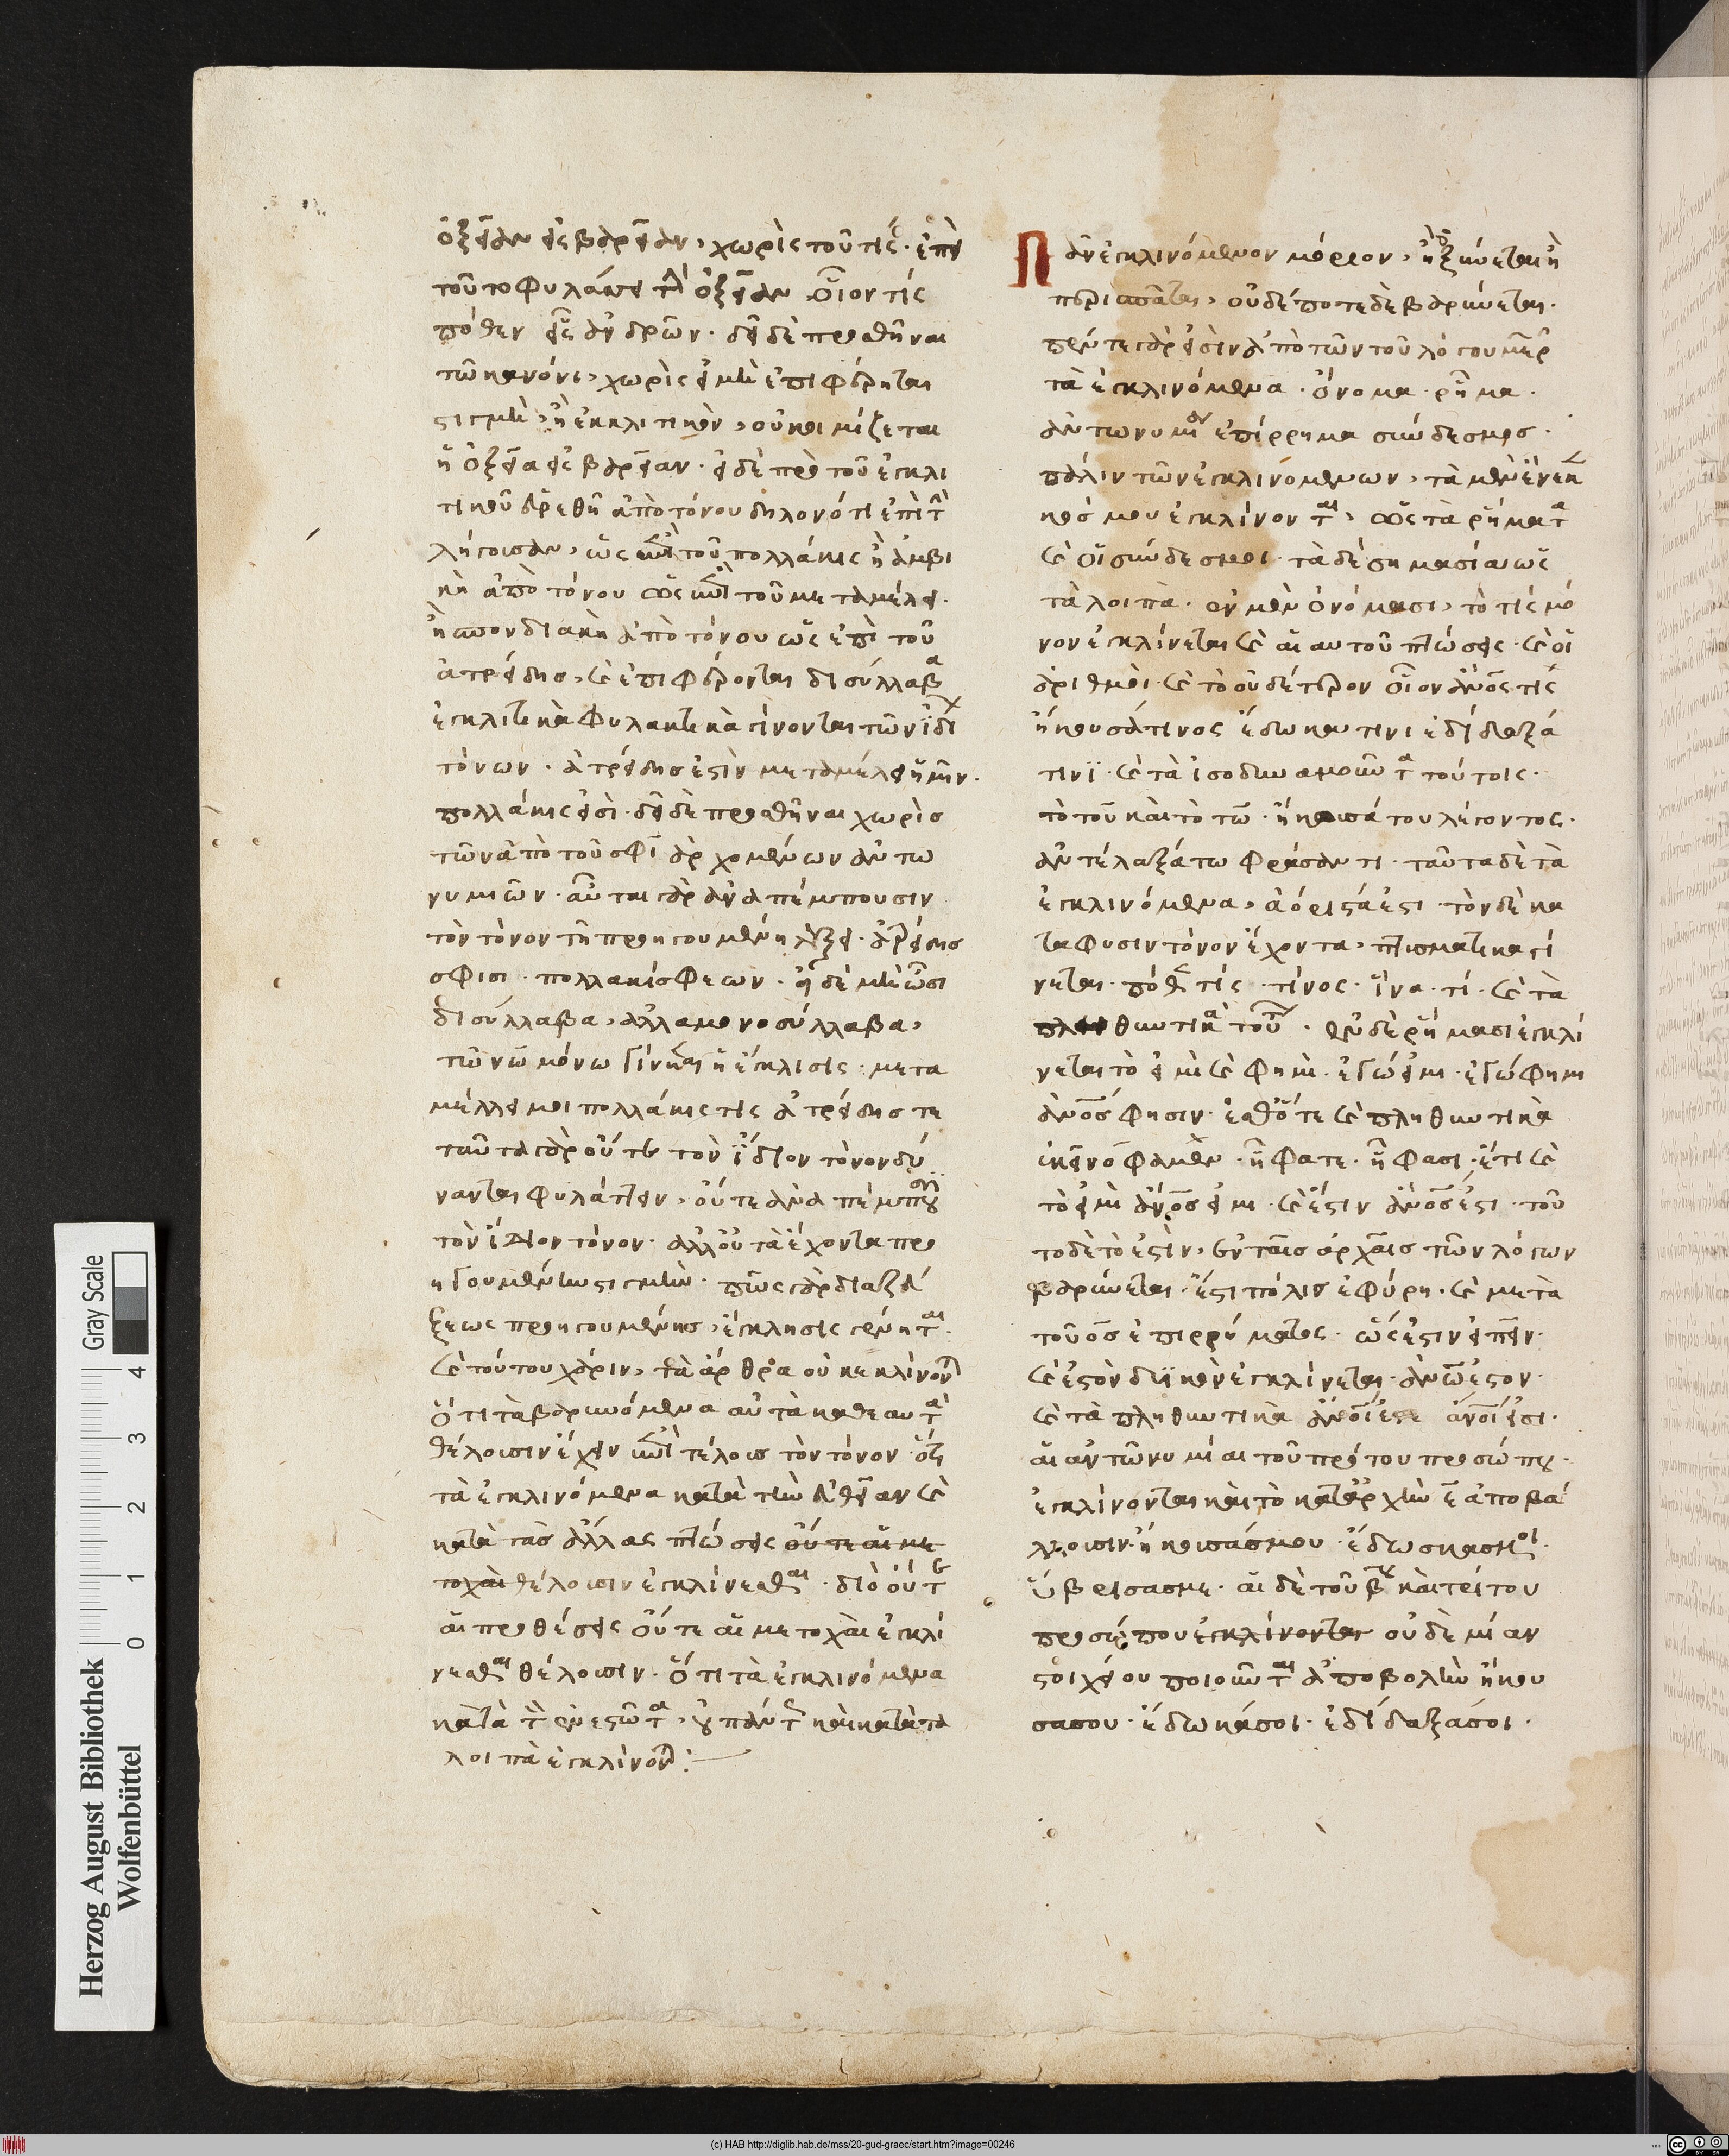 ὀξεῖαν εἰς βαρεῖαν, χωρὶς τοῦ τίς. ἐπεὶ
τοῦτο φυλάττει τὴν ὀξεῖαν. οἷον τίς
πόθεν εἷς ἀνδρῶν. δεῖ δὲ προσθῆναι
τῶ κανόνι, χωρὶς εἰ μὴ ἐπιφέρηται
στιγμὴ, ἢ ἐγκλιτικὸν, οὐ κοιμίζεται
ἡ ὀξεῖα εἰς βαρεῖαν. εἰ δὲ πρὸ τοῦ ἐγκλι
τικοῦ εὑρεθῆ ἀπὸ τόνου δηλονότι ἐπὶ τὰ
λήγουσαν, ὡς ἐπὶ τοῦ πολλάκις ἢ ἰαμβι
κὴ ἀπὸ τόνου ὡς ἐπὶ τοῦ μεταμέλει.
ἢ σπονδιακὴ ἀπὸ τόνου ὡς ἐπὶ τοῦ
ἀτρείδης, καὶ ἐπιφέρονται δισύλλαβα
ἐγκλιτικὰ φυλακτικὰ γίνονται τῶν ἰδί
τόνων. ἀτρείδης ἐστὶν μεταμέλει ἡμῖν.
πολλάκις εἰσί. δεῖ δὲ προσθῆναι χωρὶς
τῶν ἀπὸ τοῦ σφι ἀρχομένων ἀντω
νυμιῶν. αὗται γὰρ ἀναπέμπουσιν
τὸν τόνον τῆ προηγουμένη λέξει. ἀτρείδης
σφισι. πολλακίσφεων. εἰ δὲ μὴ ὦσι
δισύλλαβα, ἀλλὰ μονοσύλλαβα,
τῶ νῶ μόνω γίνηται ἡ ἔγκλισις. μετα
μέλλει μοι πολλάκις τίς ἀτρείδης τε
ταῦτα γὰρ οὔτε τὸν ἴδιον τόνον δύ
νανται φυλάττειν, οὔτε ἀναπέμπουσι
τὸν ἴδιον τόνον. ἀλλ' οὐ τὰ ἔχοντα προ
ηγουμένην στιγμὴν. πῶς γὰρ διαζεύ
ξεως προηγουμένης, ἔγκλησις γένηται.
καὶ τούτου χάριν, τὰ ἄρθρα οὐκ ἐκλίνον
ὅτι τὰ βαρυνόμενα αὐτὰ καθεαυτὰ
θέλουσιν ἔχειν ἐπὶ τέλους τὸν τόνον. ὅτι
τὰ ἐγκλινόμενα κατὰ τὴν εὐθεῖαν καὶ
κατὰ τὰς ἄλλας πτώσεις οὔτε αἱ με
τοχαὶ θέλουσιν ἐγκλίνεσθαι. διὸ οὔτε
αἱ προθέσεις οὔτε αἱ μετοχαὶ ἐγκλί
νεσθαι θέλουσιν. ὅτι τὰ ἐγκλινόμενα
κατὰ τὸν ἐνεστῶτα, οὐ πάντως καὶ κατὰ τὰ
λοιπὰ ἐγκλίνον:
Πᾶν ἐγκλινόμενον μόριον, ἢ ὀξύνεται ἢ
περισπᾶται, οὐδέποτε δὲ βαρύνεται.
πέντε γὰρ εἰσὶν ἀπὸ τῶν τοῦ λόγου μερ
τὰ ἐγκλινόμενα. ὄνομα. ρῆμα.
ἀντωνυμία ἐπίρρημα σύνδεσμος.
πάλιν τῶν ἐγκλινομένων, τὰ μὲν ἕνεκα
κόσμου ἐγκλίνονται, ὡς τὰ ρήματα
καὶ οἱ σύνδεσμοι. τὰ δὲ σημασίαι ὡς
τὰ λοιπὰ. ἐν μὲν ὀνόμασι, τὸ τίς μό
νον ἐγκλίνεται καὶ αἱ αὐτοῦ πτώσεις. καὶ οἱ
ἀριθμοί. καὶ τὸ οὐδέτερον οἷον ἄνος τίς
ἤκουσά τινος ἔδωκα τινι ἐδίδαξά
τινϊ. καὶ τὰ ἰσοδυναμοῦντα τούτοις.
τὸ τοῦ καὶ τὸ τῶ. ἤκουσά του λέγοντος.
ἀντέλαξά τω φράσαντι. ταῦτα δὲ τὰ
ἐγκλινόμενα, ἀόριστά ἐστι. τὸν δὲ κα
τα φυσιν τόνον ἔχοντα, πτισματικα γί
νεται. πόθεν τίς. τίνος. ἵνα. τί. καὶ τὰ
πληθυντικὰ τούτων. ἐν δὲ ρήμασι ἐγκλί
νεται τὸ εἰμὶ καὶ φημὶ. ἐγώ εἰμι. ἐγώ φημι
ἄνος φησιν. ἔσθ' ὅτε καὶ πληθυντικὰ
ἐκεῖνο φαμὲν. ἢ φατε. ἢ φασι. ἔτι καὶ
τὸ εἰμὶ ἄνος εἰμι. καὶ ἔστιν ἄνος ἐστι. τοῦ
το δὲ τὸ ἐστὶν, ἐν ταῖς ἀρχαῖς τῶν λόγων
βαρύνεται. ἔστι πόλις ἐφύρη. καὶ μετὰ
τοῦ ὡς ἐπιρρήματος. ὡς ἔστιν εἰπεῖν.
καὶ ἐστὸν δυϊκὸν ἐγκλίνεται. ἄνω ἐστον.
καὶ τὰ πληθυντικὰ ἄνοι ἐστε ἄνοι εἰσι.
αἱ ἀντωνυμίαι τοῦ πρώτου προσώπου.
ἐγκλίνονται καὶ τὸ κατ' ἀρχὴν ε ἀποβά
λλουσιν. ἤκουσάς μου. ἔδωσκας μοι.
ὕβρισασμε. αἱ δὲ τοῦ β καὶ τρίτου
προσώπου ἐγκλίνονται οὐδὲ μίαν
στοιχείου ποιοῦνται ἀποβολὴν ἤκου
σασου. ἔδωκάσοι. ἐδίδαξάσοι.
Herzog August Bibliothek
Wolfenbüttel
Gray Scale
0 1 2 3 4
(c) HAB http://diglib.hab.de/mss/20-gud-graec/start.htm?image=00246